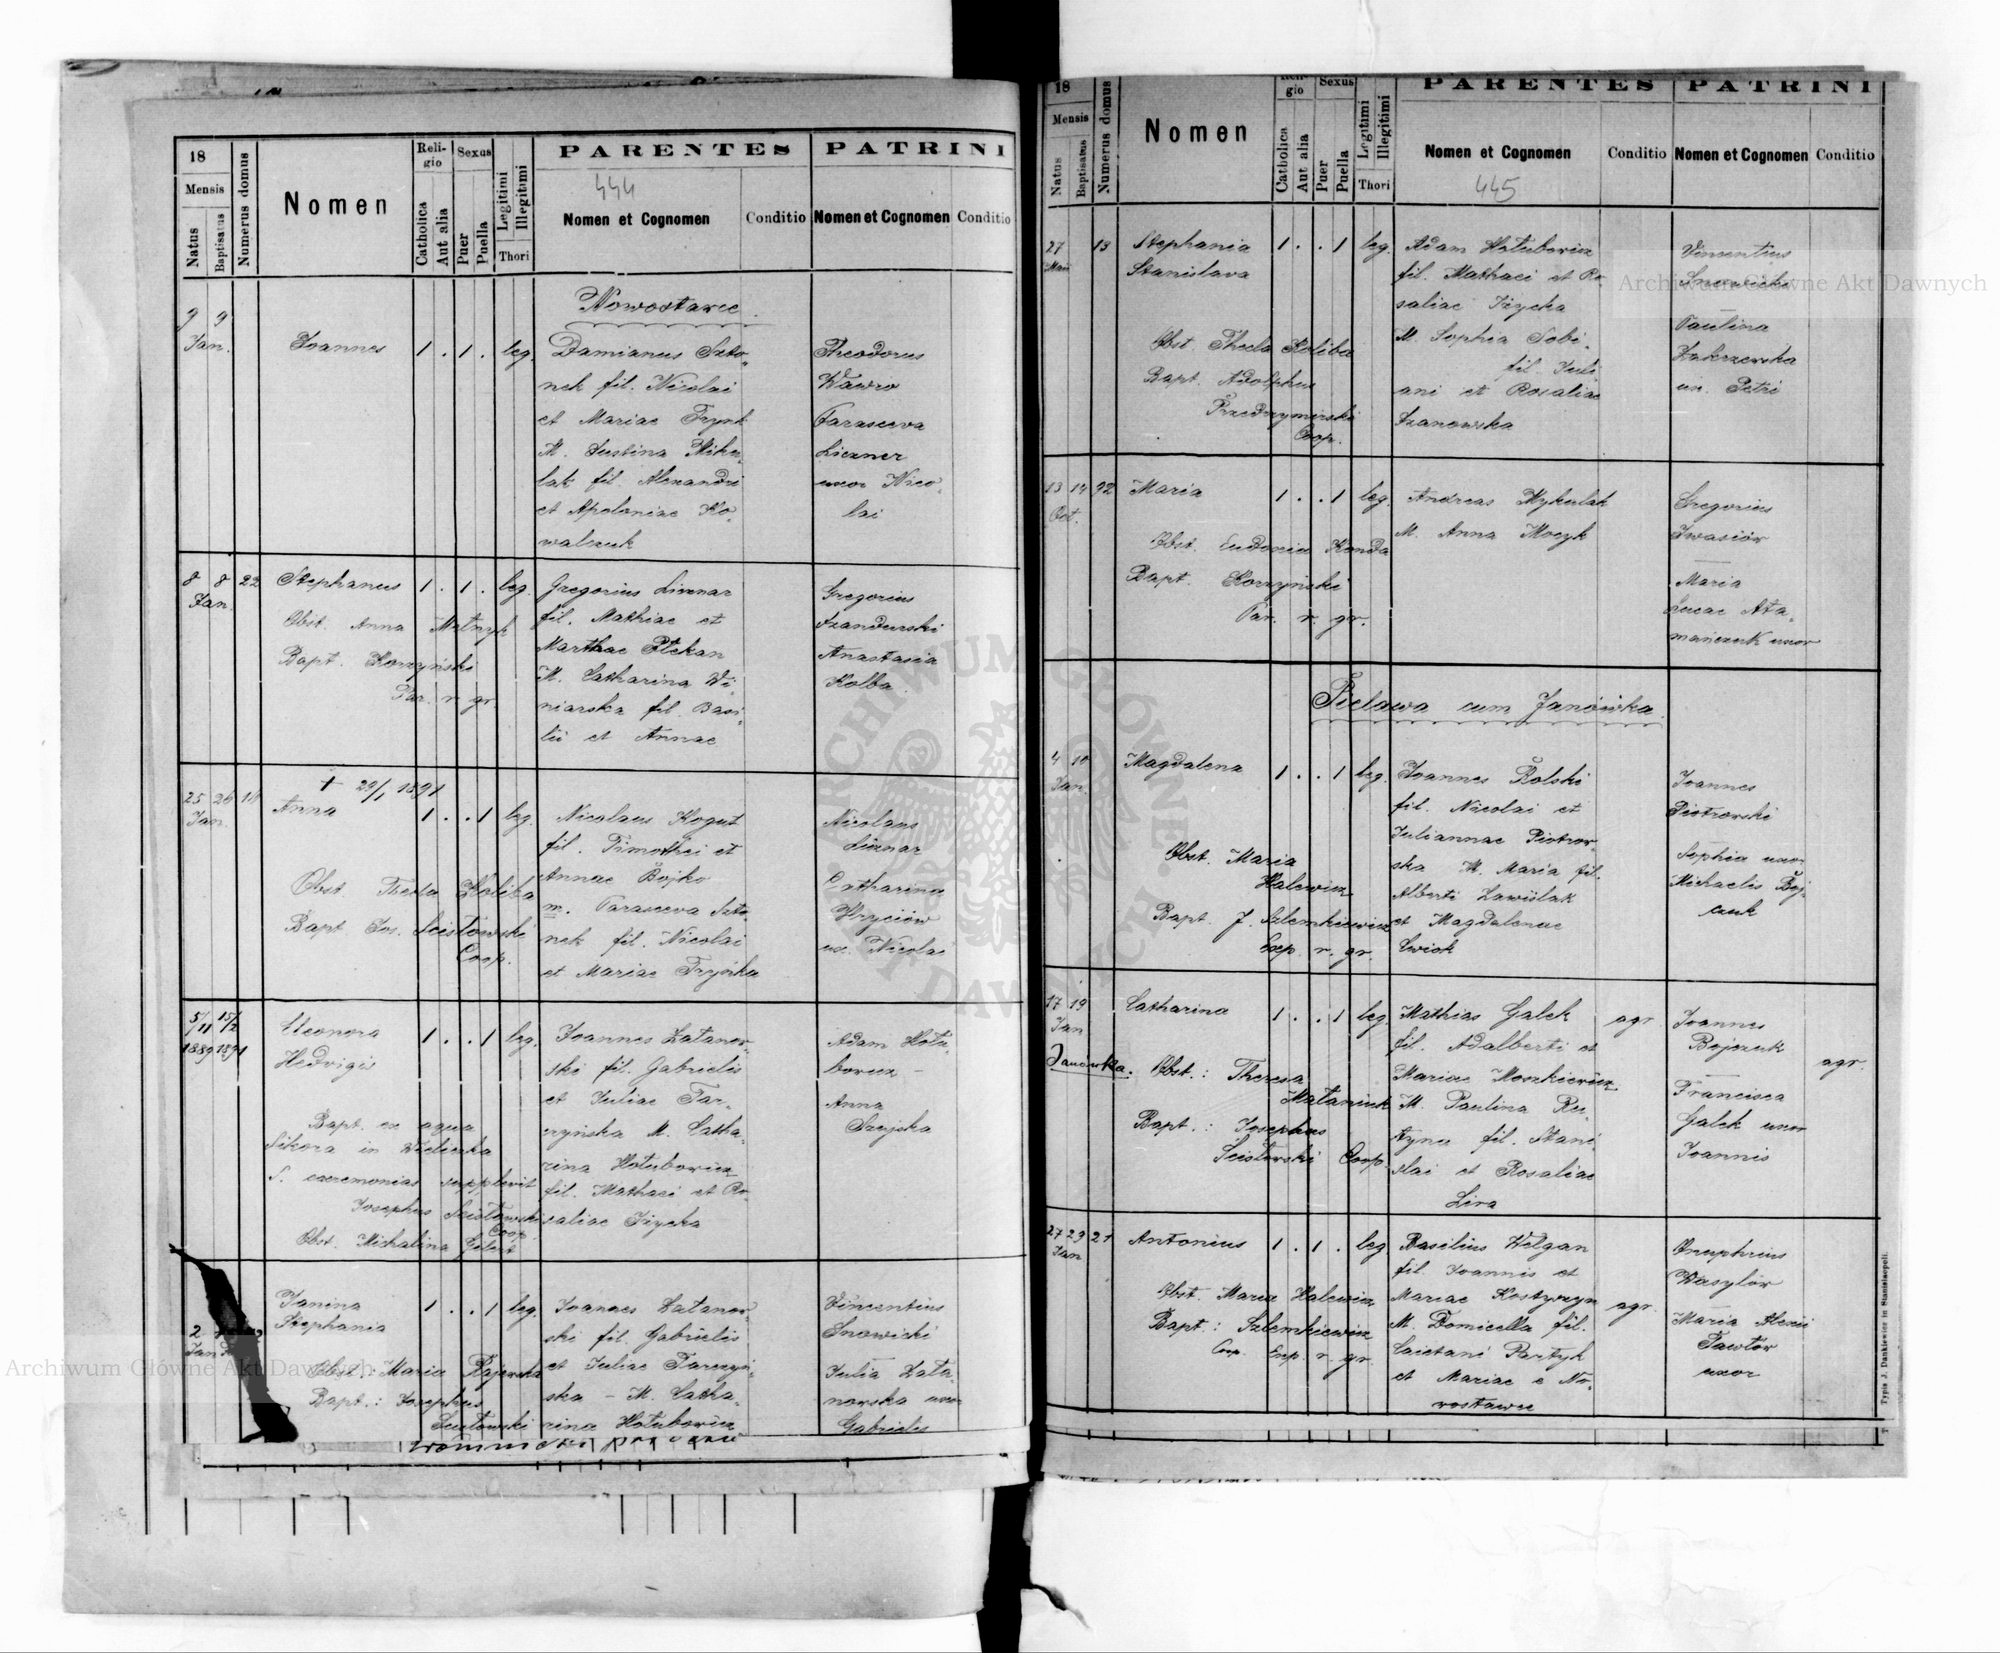 18
Mensis
Natus
Baptisatus
Numerus domus
Nomen
Religio
Catholica
Aut alia
Sexus
Puer
Puella
Legitimi
Illegitimi
Thori
PARENTES
444
Nomen et Cognomen
Conditio
PATRINI
Nomen et Cognomen
Conditio
Nowostawce
9 9
Jan.
Joannes
1 . 1 . leg.
Damianus Szto-
nek fil. Nicolai
et Mariae Trynk
M. Justina Miku-
lak fil. Alexandri
et Apoloniae Ko-
walczuk
Theodorus
Wawro
Parasceva
Liczner
uxor Nico-
lai
8 8 22
Jan.
Stephanus
1 . 1 . leg.
Obst. Anna
Bapt. Korzyński
Par. r. gr.
Gregorius
fil. Mathiae et
Marthae
M. Catharina Wi-
niarska fil. Basi-
lii et Annae
Gregorius
Szandurski
Anastasia
Kolba
25 26
Jan.
+ 29/1 1891
Anna
1 . . 1 leg.
Obst. Thecla Koliba
Bapt. Jos. Scisłowski
Coop.
Nicolaus Kogut
fil. Timothei et
Annae Bojko
m. Parasceva Szto-
nek fil. Nicolai
et Mariae
Nicolaus
Liznar
Catharina
Hryciów
ux. Nicolai
5/11 15/2
1889 1891
Eleonora
Hedvigis
1 . . 1 leg.
Bapt. ex aqua
Sikora in
S. caeremonias supplevit
Josephus Scisłowski
Coop.
Obst. Michalina
Joannes Łatanow-
ski fil. Gabrielis
et Juliae Tar-
czyńska M. Catha-
rina Hołubowicz
fil. Mathaei et Ro-
saliae Iżycka
Adam Hołu-
bowicz –
Anna
2
Jan
Janina
Stephania
1 . . 1 leg.
Obst. Maria Rajewska
Bapt.: Josephus
Joannes Łatanow-
ski fil. Gabrielis
et Juliae Tarczyń-
ska – M. Catha-
rina Hołubowicz
Vincentius
Snowicki
Julia Łata-
nowska uxor
Gabrielis
18
Mensis
Natus
Baptisatus
Numerus domus
Nomen
Religio
Catholica
Aut alia
Sexus
Puer
Puella
Legitimi
Illegitimi
Thori
PARENTES
Nomen et Cognomen
445
Conditio
PATRINI
Nomen et Cognomen
Conditio
27 13
Stephania
Stanislava
1 . . 1 leg.
Obst. Thecla Koliba
Bapt. Adolphus
Przedrzymirski
Coop.
Adam Hołubowicz
fil. Mathaei et Ro-
saliae Iżycka
M. Sophia Sobi-
fil. Juli-
ani et Rosaliae
Szanowska
Vincentius
Snowicki
Paulina
Zakrzewska
ux. Petri
13 14 92
Oct.
Maria
1 . . 1 leg.
Obst. Eudonia Konda
Bapt. Korzyński
Par. r. gr.
Andreas Mykulak
M. Anna Moczyk
Gregorius
Iwasiów
Maria
Lucae Ata-
mańczuk uxor
Pielawa cum Janówka
4 10
Jan
Magdalena
1 . . 1 leg.
Obst. Maria
Halewicz
Bapt. J. Szlemkiewicz
Exp. r. gr.
Joannes Bolski
fil. Nicolai et
Juliannae Piotrow-
ska M. Maria fil.
Alberti Zawiślak
et Magdalenae
Cwiok
Joannes
Piotrowski
Sophia uxor
Michaelis Boj-
czuk
17 19
Jan
Janówka.
Catharina
1 . . 1 leg.
Obst.: Theresa
Mataniuk
Bapt.: Josephus
Scisłowski Coop.
Mathias Gałek
fil. Adalberti et
Mariae Moszkiewicz
M. Paulina Ru-
tyna fil. Stani-
slai et Rosaliae
Lira
agr.
Joannes
Bojczuk
agr.
Francisca
Gałek uxor
Joannis
27 29 21
Jan
Antonius
1 . 1 . leg
Obst. Maria Halewicz
Bapt.: Szlemkiewicz
Coop. Exp. r. gr.
Basilius Welgan
fil. Joannis et
Mariae Kostyszyn
M. Domicella fil.
Caietani Partyk
et Mariae e No-
wostawce
agr.
Onuphrius
Wasylów
Maria Alexii
Pawłow
uxor
Typis J. Dankiewicz in Stanislaopoli.
Archiwum Główne Akt Dawnych
Archiwum Główne Akt Dawnych
ARCHIWUM GŁÓWNE
AKT DAWNYCH